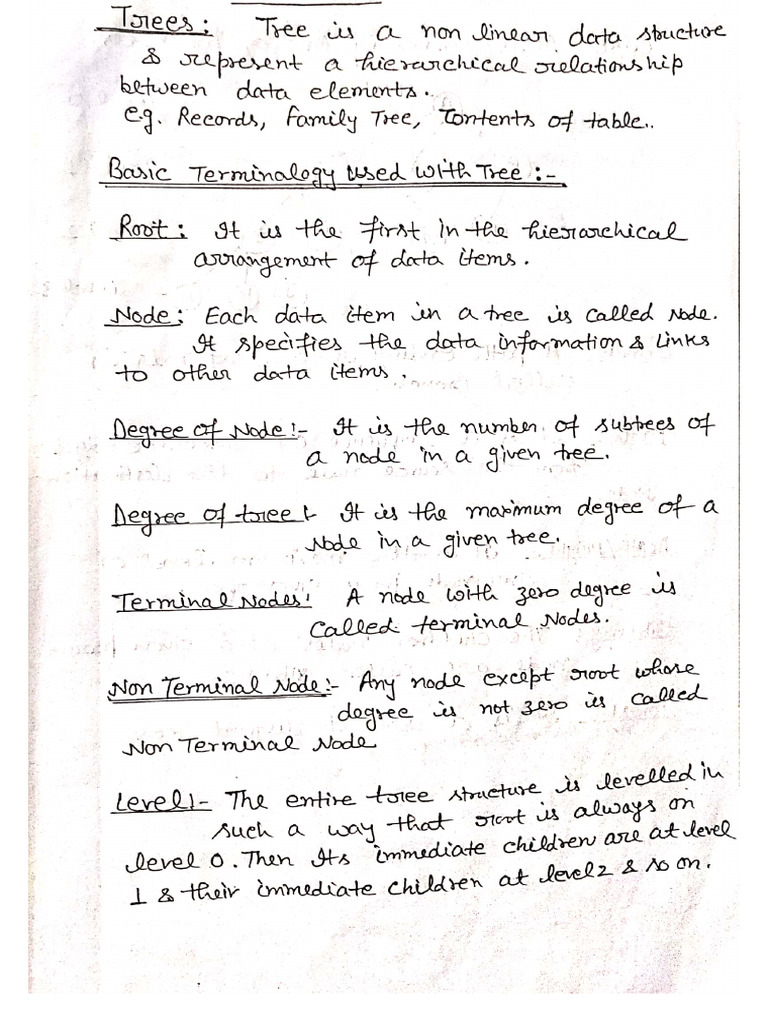 Trees: Tree is a non linear data structure
& represent a hierarchical relationship
between data elements.
e.g. Records, Family Tree, Contents of table..
Basic Terminalogy Used with Tree :-
Root: It is the first in the hierarchical
arrangement of data items.
Node: Each data item in a tree is called Node.
It specifies the data information & Links
to other data items.
Degree of Node:- It is the number of subtrees of
a node in a given tree.
Degree of tree:- It is the maximum degree of a
Node in a given tree.
Terminal Nodes: A node with zero degree is
called terminal Nodes.
Non Terminal Node:- Any node except root whose
degree is not zero is called
Non Terminal Node
Level:- The entire tree structure is levelled in
such a way that root is always on
level 0. Then Its immediate children are at level
1 & their immediate children at level 2 & so on.